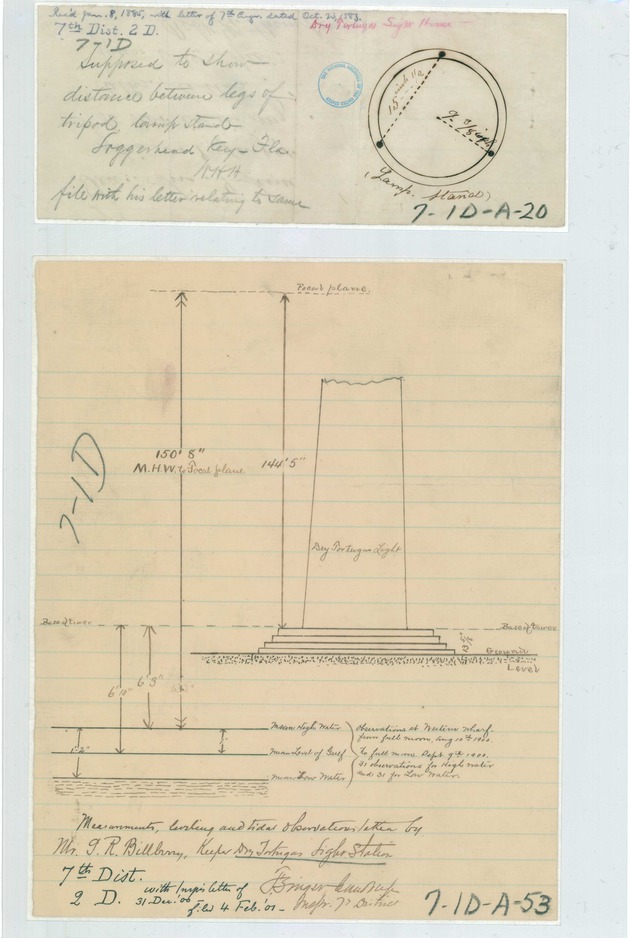 Rec'd Jan. 8, 1885, with letter of 7th Engr. dated Oct. 23, 1883.
7th Dist. 2 D.
7-1D
Dry Tortugas Light House
Supposed to show
distance between legs of
tripod, lamp stand
Loggerhead Key Fla.
file with his letter relating to same
15 inch
(Lamp. Stand)
7-1D-A-20
Focal plane.
7-1D
150' 8"
M.H.W. to Focal plane
144' 5"
Dry Tortugas Light
Base of tower
Base of tower
Ground
Level
6' 3"
Mean High Water
Mean Level of Gulf
1' 2"
Mean Low Water
Observations at Western wharf
from full moon, Aug 10th 1900.
To full moon Sept. 9th 1900.
31 observations for High water
and 31 for Low Water.
Measurements, leveling and tidal observations taken by
Mr. Billberry, Keeper Dry Tortugas Light Station
7th Dist.
2 D.
with Insp's letter of
31 Dec. '00
f.w. 4 Feb. '01
Insp. 7th District
7-1D-A-53